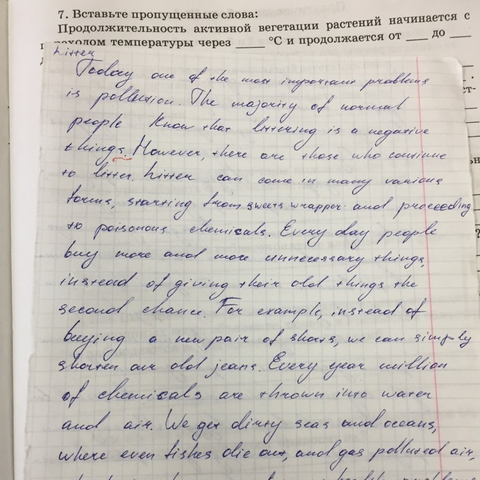 7. Вставьте пропущенные слова:
Продолжительность активной вегетации растений начинается с
переходом температуры через ____ °C и продолжается от ___ до ___
Litter
Today one of the most important problems
is pollution. The majority of normal
people know that littering is a negative
things. However, there are those who continue
to litter. Litter can come in many various
forms, starting from sweets wrapper and proceeding
to poisonous chemicals. Every day people
buy more and more unnecessary things,
instead of giving their old things the
second chance. For example, instead of
buying a new pair of shorts, we can simply
shorten our old jeans. Every year million
of chemicals are thrown into water
and air. We get dirty seas and oceans,
where even fishes die out, and gas polluted air,